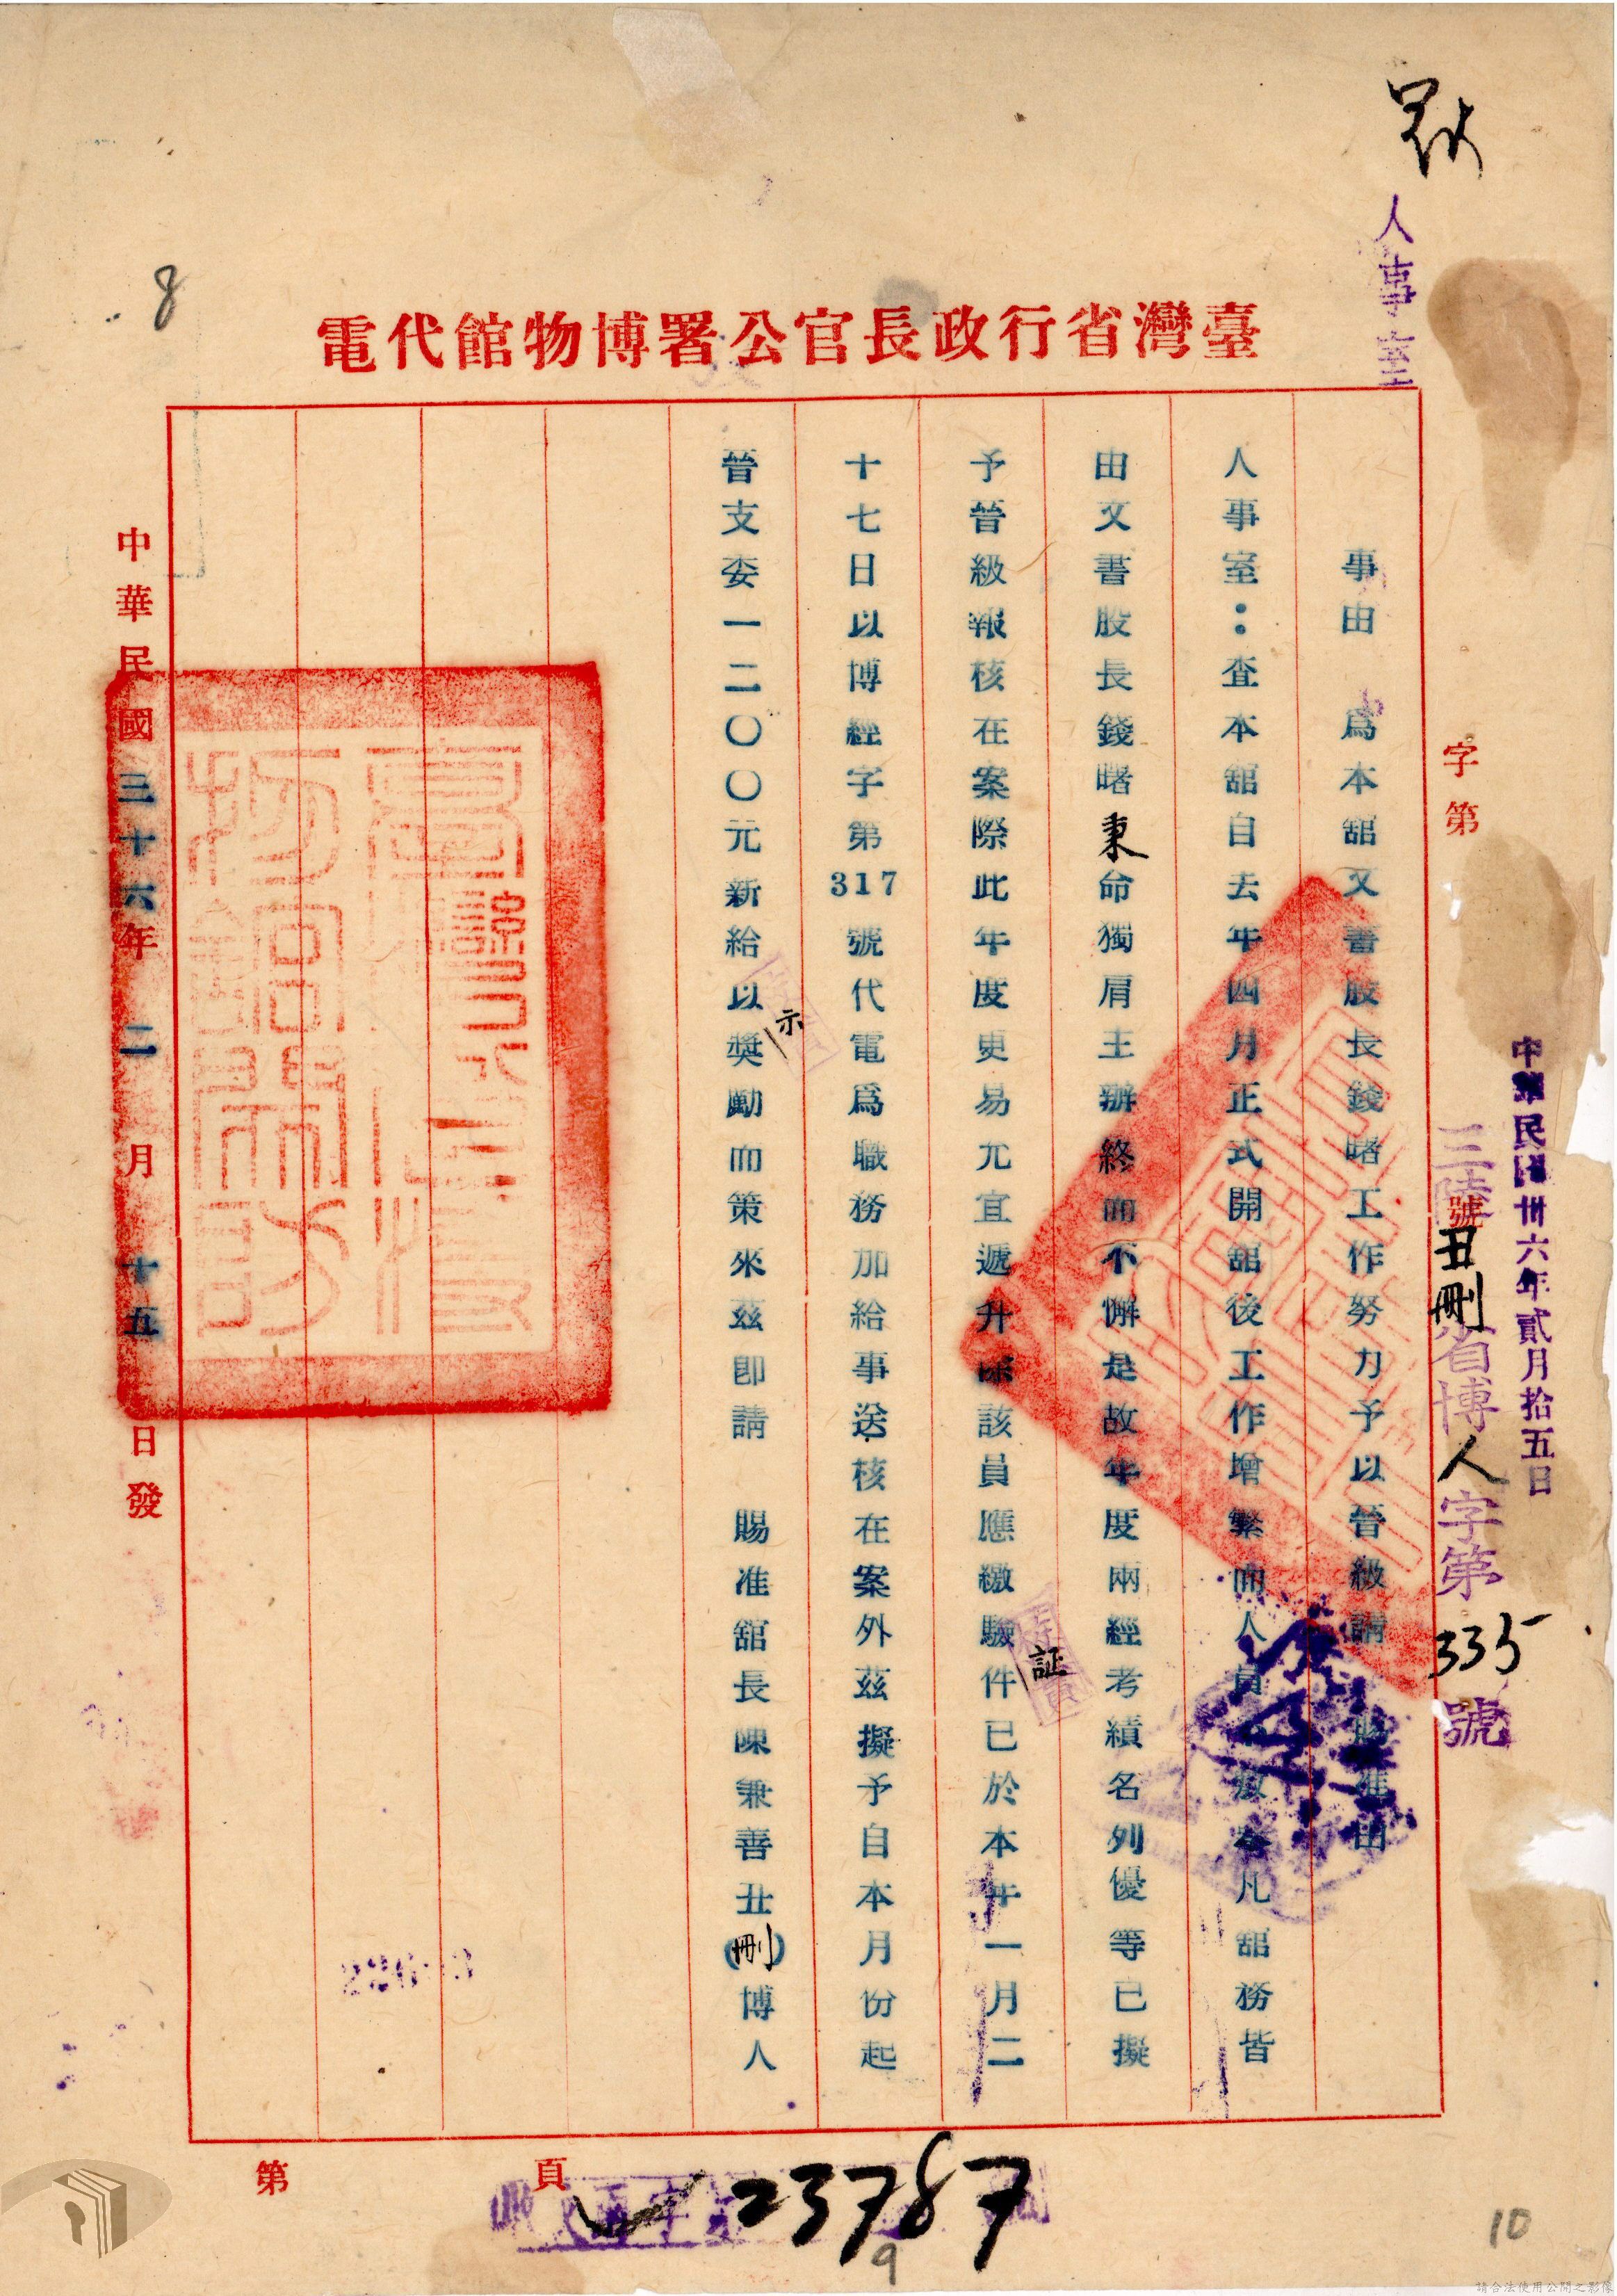 人事室
臺灣省行政長官公署博物館代電
中華民國卅六年貳月拾五日
字第 號
三陸丑刪省博人字第335號
事由 為本舘文書股長錢曙工作努力予以晉級請 賜准由
人事室：查本舘自去年四月正式開舘後工作增繁而人員 敷 凡舘務皆
由文書股長錢曙秉命獨肩主辦終而不懈是故年度兩經考績名列優等已擬
予晉級報核在案際此年度更易允宜遞升除該員應繳驗証件已於本年一月二
十七日以博經字第317號代電為職務加給事送核在案外茲擬予自本月份起
晉支委一二〇〇元新給以示獎勵而策來茲即請 賜准舘長陳兼善丑(刪)博人
中華民國三十六年二月十五日發
第 頁
23787
8
9
10
請合法使用公開之影像